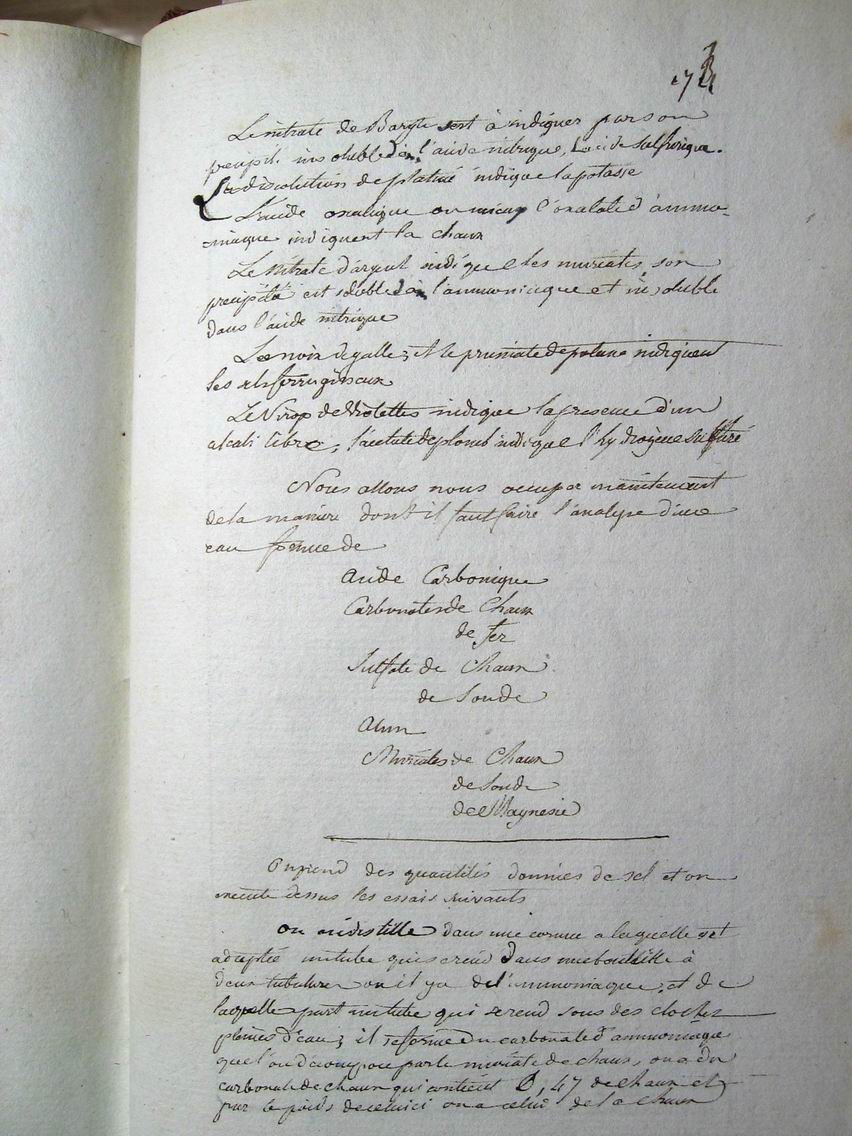 Le nitrate de Baryte sert à indiquer par son
precipit. insoluble dan. l'acide nitrique, l'acide sulfurique.
La dissolution de platine indique la potasse
L'acide oxalique ou mieux l'oxalate d'ammo-
niaque indiquent la chaux
Le nitrate d'argent indique les muriates, son
precipité est soluble dan. l'ammoniaque et insoluble
dans l'acide nitrique
La noix de galle, et le prussiate de potasse indiquent
les sels ferrugineux
Le Sirop de Violettes indique la presence d'un
alcali libre, l'acetate de plomb indique l'hydrogene sulfuré
Nous allons nous occuper maintenant
de la maniere dont il faut faire l'analyse d'une
eau formée de
Acide Carbonique
Carbonates de Chaux
de fer
Sulfate de Chaux
de Soude
Alun
Muriates de Chaux
de Soude
de Magnesie
On prend des quantités données de sel et on
execute dessus les essais suivants
on distille dans une cornue a laquelle est
adaptée un tube qui se rend dans une bouteille à
deux tubulures où il y a de l'ammoniaque, et de
laquelle part un tube qui se rend sous des cloches
pleines d'eau; il se forme du carbonate d'ammoniaque
que l'on décompose par le muriate de chaux, on a du
carbonate de chaux qui contient 0,47 de chaux et
par le poids de celui ci on a celui de la chaux